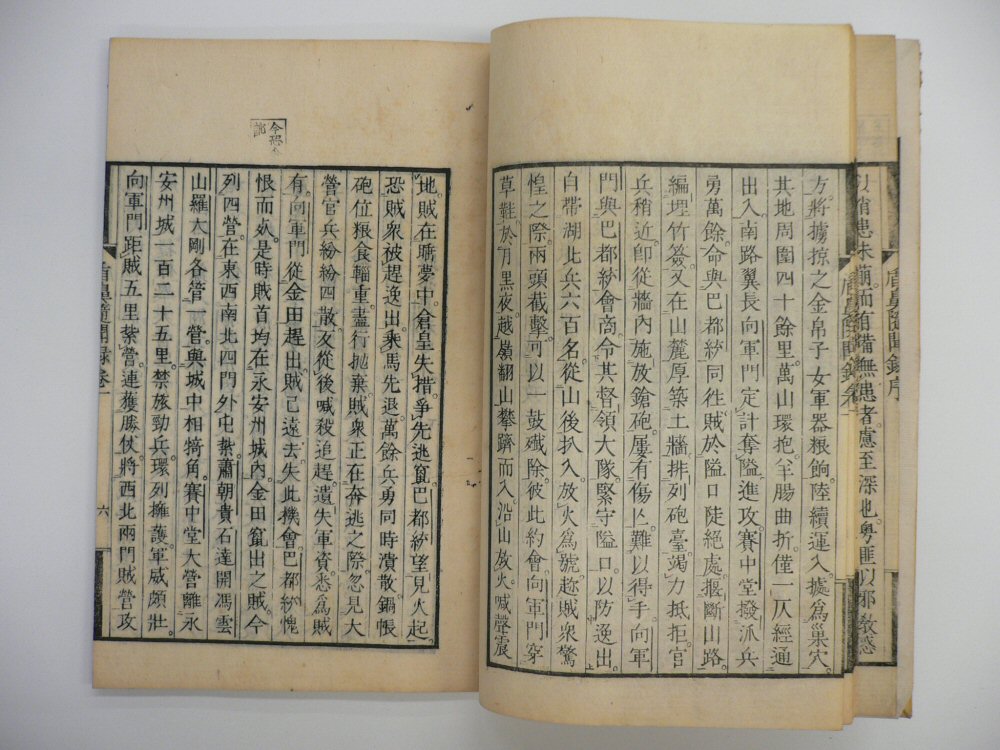 方。將擄掠之金帛子女軍器粮餉。陸續運入。據爲巢穴。
其地周圍四十餘里。萬山環抱。羊腸曲折。僅一仄經通
出入。南路翼長向軍門。定計奪隘進攻。賽中堂撥派兵
勇萬餘。命與巴都統同徃。賊於隘口陡絕處。掘斷山路。
編埋竹簽。又在山麓厚築土牆。排列砲臺。竭力抵拒。官
兵稍近。卽從牆內施放鎗砲。屢有傷亾。難以得手。向軍
門與巴都統會商。令其督領大隊。緊守隘口。以防逸出。
自帶湖北兵六百名。從山後扒入。放火爲號。趂賊衆驚
惶之際。兩頭截擊。可以一鼓殲除。彼此約會。向軍門穿
草鞋。於月黑夜。越嶺翻山。攀躋而入。沿山放火。喊聲震
地。賊在矌夢中。倉皇失措。爭先逃竄。巴都統望見火起。
恐賊衆被趕逸出。乘馬先退。萬餘兵勇同時潰散。鍋帳
砲位粮食輜重。盡行拋棄。賊衆正在奔逃之際。忽見大
營官兵紛紛四散。友從後喊殺追趕。遺失軍資。悉爲賊
有。向軍門從金田趕出。賊已遠去。失此機會。巴都統愧
恨而歿。是時賊首均在永安州城內。金田竄出之賊。今
列四營。在東西南北四門外屯紮。蕭朝貴石達開馮雲
山羅大剛各管一營。與城中相犄角。賽中堂大營離永
安州城一百二十五里。禁旅勁兵。環列擁護。軍威頗壯。
向軍門距賊五里紮營。連獲勝仗。將西北兩門賊營攻
六